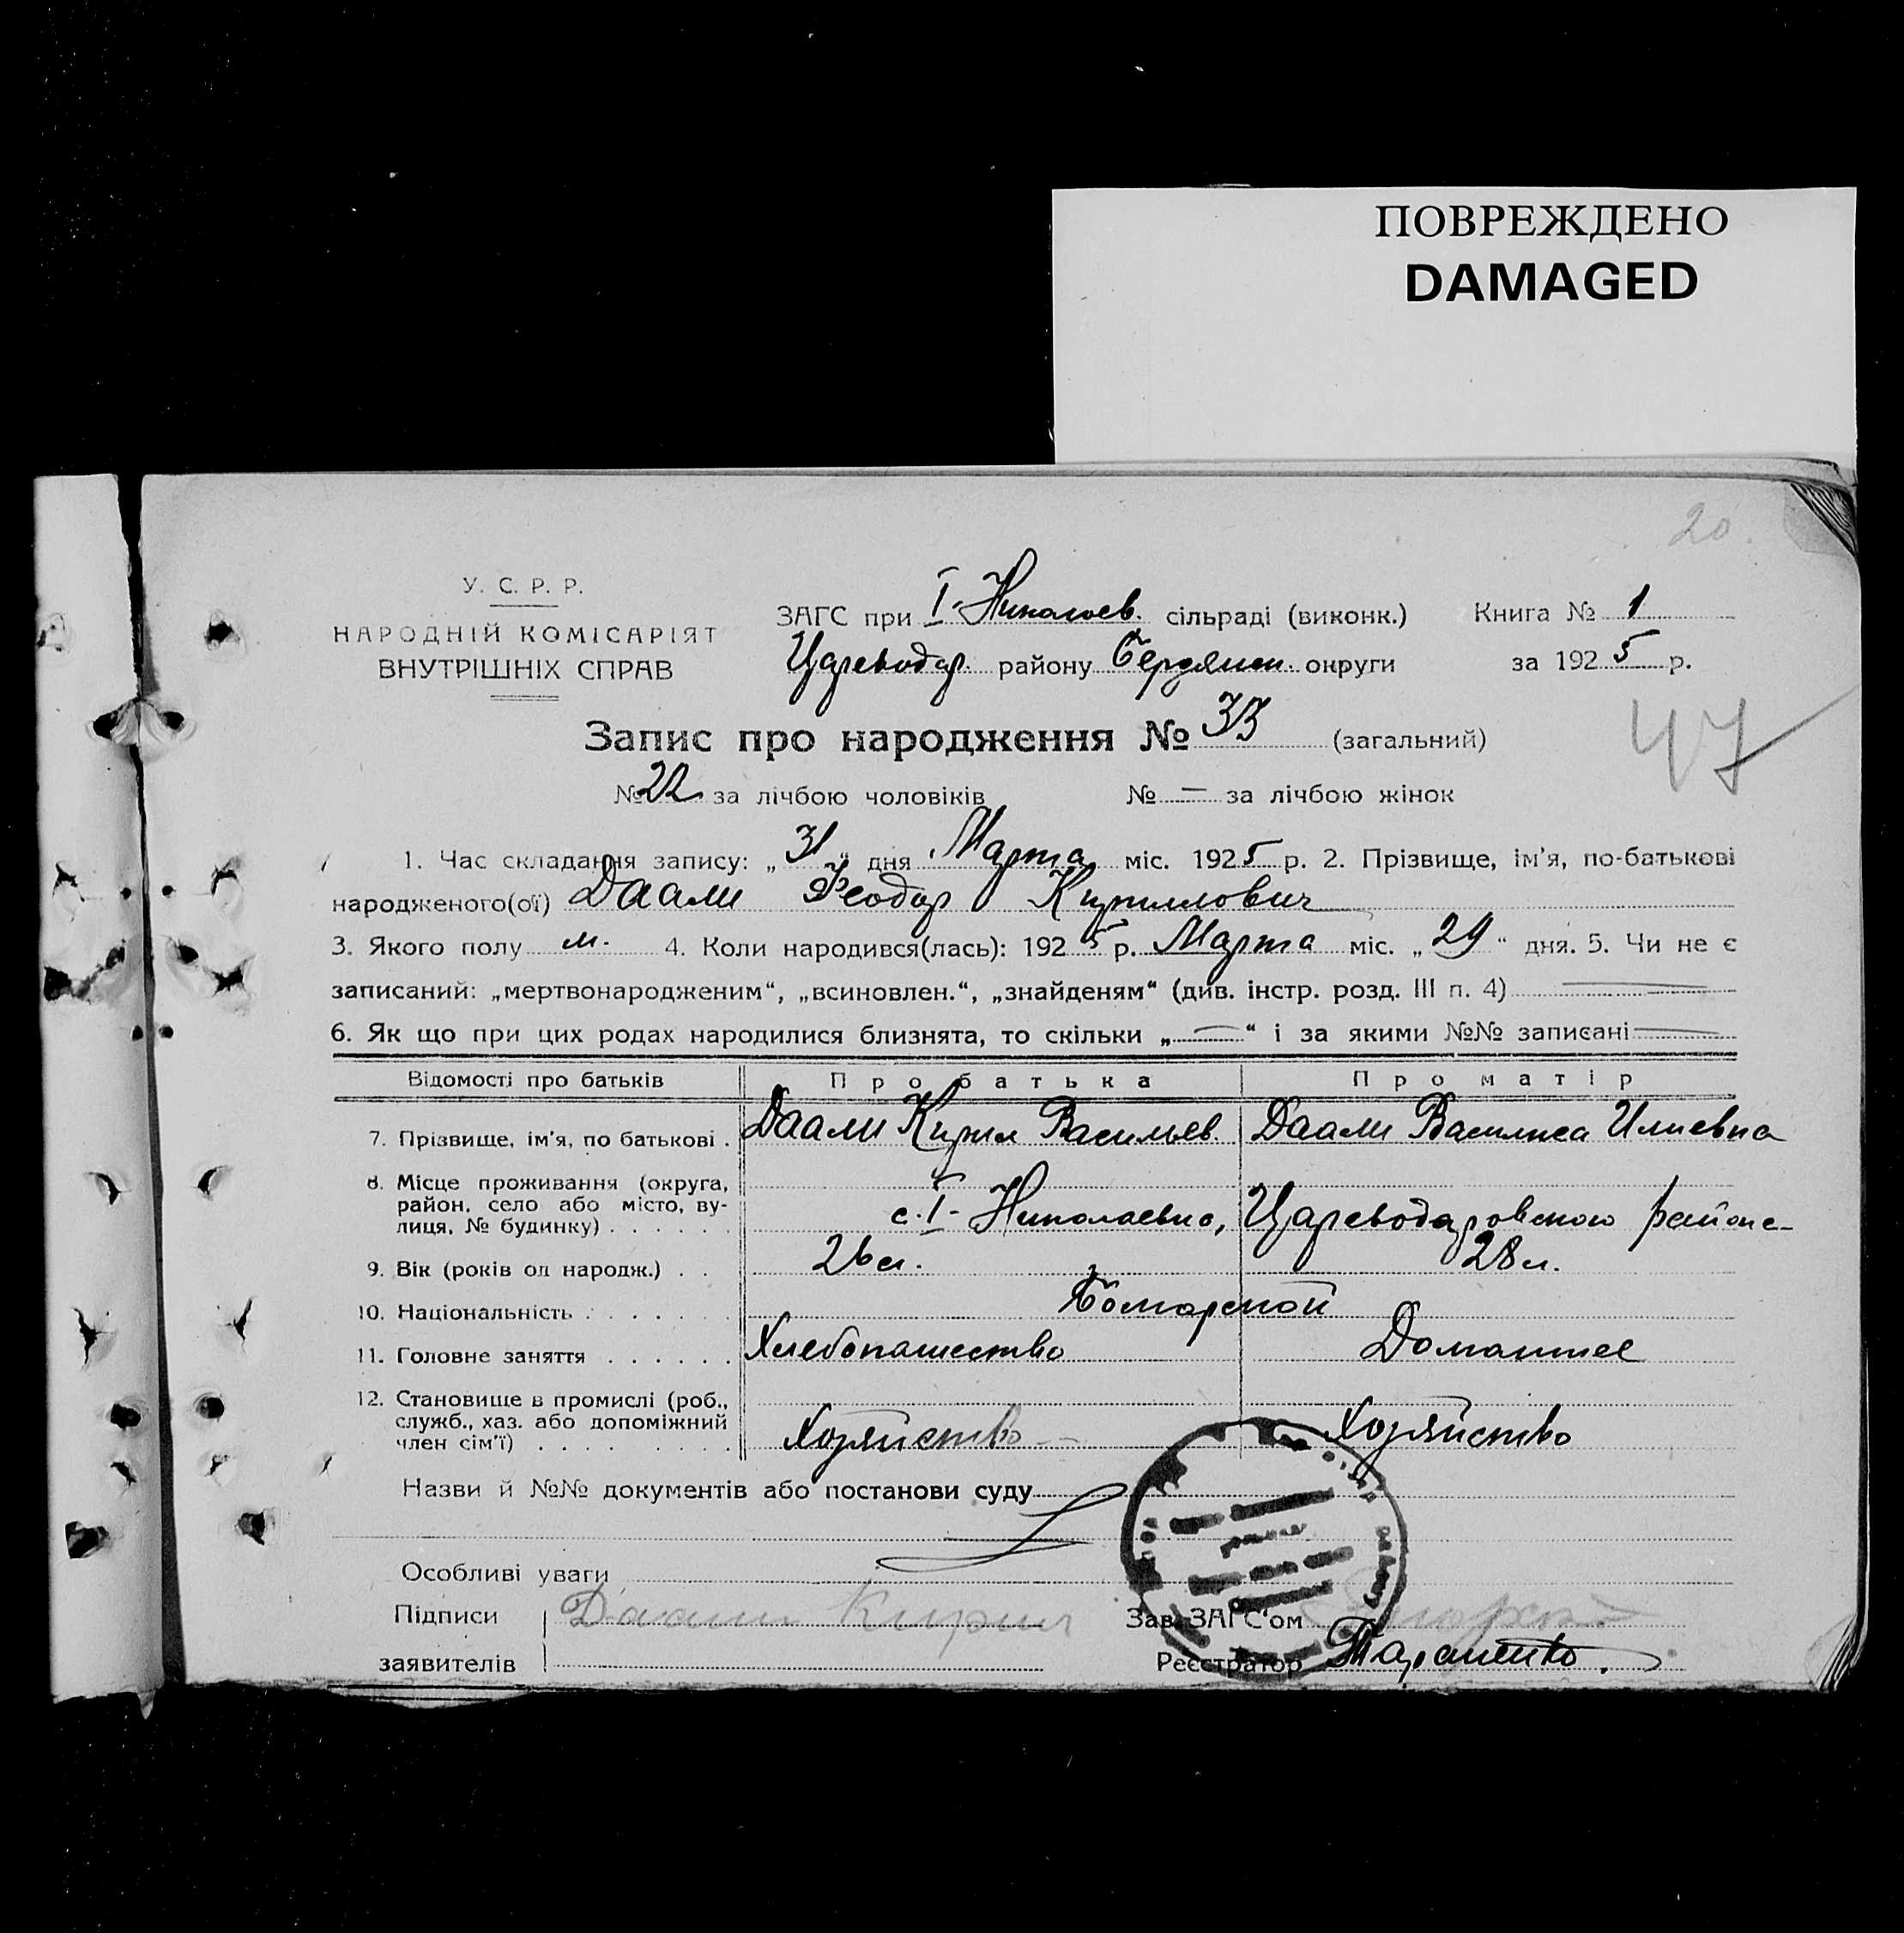 ПОВРЕЖДЕНО
DAMAGED
20.
У. С. Р. Р.
НАРОДНІЙ КОМІСАРІЯТ
ВНУТРІШНІХ СПРАВ
ЗАГС при I-Николаев. сільраді (виконк.) Книга № 1
Цареводар. району Бердянск. округи за 1925 р.
47
Запис про народження № 33 (загальний)
№ 22 за лічбою чоловіків № — за лічбою жінок
1. Час складання запису: „31“ дня Марта міс. 1925 р. 2. Прізвище, ім’я, по-батькові
народженого(ої) Даали Феодор Кириллович
3. Якого полу м. 4. Коли народився(лась): 1925 р. Марта міс. „29“ дня. 5. Чи не є
записаний: „мертвонародженим“, „всиновлен.“, „знайденям“ (див. інстр. розд. III п. 4) —
6. Як що при цих родах народилися близнята, то скільки „—“ і за якими №№ записані —
Відомості про батьків Про батька Про матір
7. Прізвище, ім’я, по батькові . Даали Кирил Васильев. Даали Василиса Илиевна
8. Місце проживання (округа,
район, село або місто, ву-
лиця, № будинку) . . . . . . с. I-Николаевка, Цареводаровского района
9. Вік (років од народж.) . . 26 л. 28 л.
10. Національність . . . . . . . Болгарской
11. Головне заняття . . . . . . Хлебопашество Домашнее
12. Становище в промислі (роб.,
служб., хаз. або допоміжний
член сім’ї) . . . . . . . . . Хозяйство Хозяйство
Назви й №№ документів або постанови суду
Особливі уваги
Підписи Даали Кирил Зав. ЗАГС‘ом
заявителів Реєстратор Тараненко.